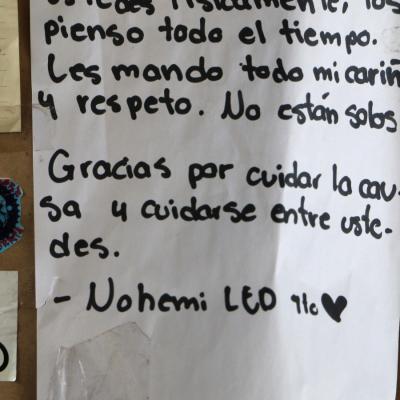 ustedes físicamente, los
pienso todo el tiempo.
Les mando todo mi cariñ
y respeto. No están solos
Gracias por cuidar la cau-
sa y cuidarse entre uste-
des.
- Nohemi LEO